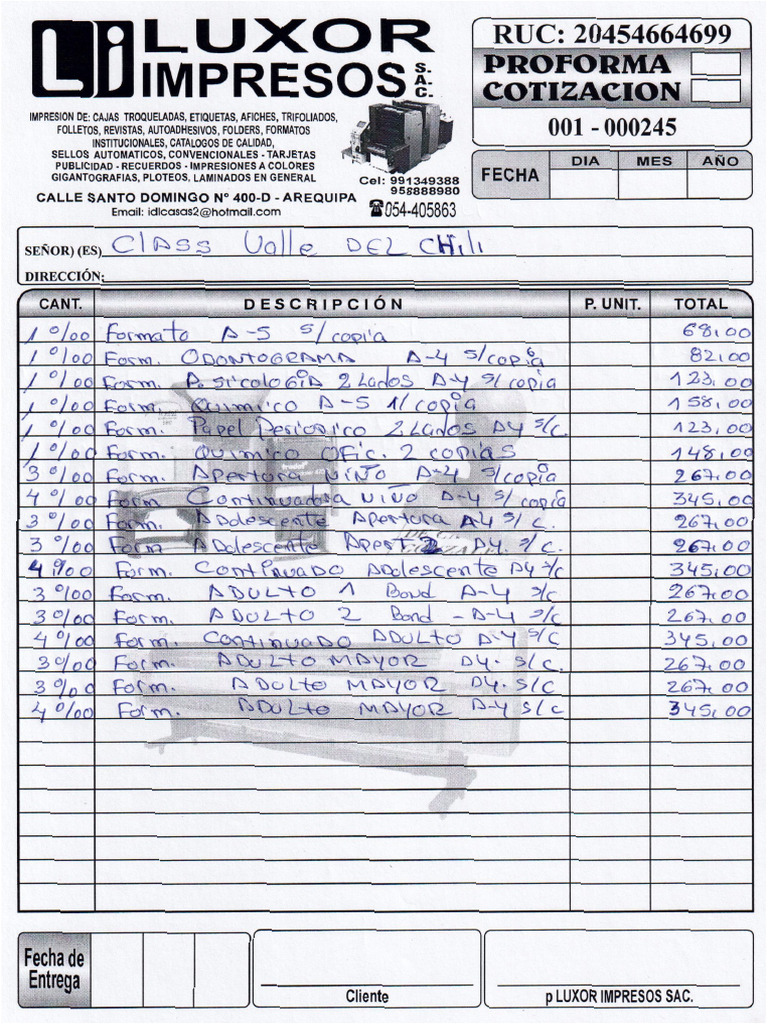 Li LUXOR
IMPRESOS S.A.C.
IMPRESION DE: CAJAS TROQUELADAS, ETIQUETAS, AFICHES, TRIFOLIADOS,
FOLLETOS, REVISTAS, AUTOADHESIVOS, FOLDERS, FORMATOS
INSTITUCIONALES, CATALOGOS DE CALIDAD,
SELLOS AUTOMATICOS, CONVENCIONALES - TARJETAS
PUBLICIDAD - RECUERDOS - IMPRESIONES A COLORES
GIGANTOGRAFIAS, PLOTEOS, LAMINADOS EN GENERAL
CALLE SANTO DOMINGO Nº 400-D - AREQUIPA
Email: idlcasas2@hotmail.com
Cel: 991349388
958888980
☎054-405863
RUC: 20454664699
PROFORMA
COTIZACION
001 - 000245
FECHA DIA MES AÑO
SEÑOR) (ES) Class Valle DEL CHili
DIRECCIÓN:
CANT. DESCRIPCIÓN P. UNIT. TOTAL
1 º/00 Formato A-5 s/copia 68.00
1 º/00 Form. ODONTOGRAMA A-4 s/copia 82.00
1 º/00 Form. Psicologia 2 Lados A-4 s/copia 123.00
1 º/00 Form. Quimico A-5 1/copia 158.00
1 º/00 Form. Papel Periodico 2 Lados A4 s/c. 123.00
1 º/00 Form. Quimico Ofic. 2 copias 148.00
3 º/00 Form. Apertura NIÑO A-4 s/copia 267.00
4 º/00 Form Continuadora NIÑO A-4 s/copia 345.00
3 º/00 Form. Adolescente Apertura A4 s/c. 267.00
3 º/00 Form Adolescente Apert. 2 A4. s/c. 267.00
4 º/00 Form. Continuado Adolescente A4 s/c 345.00
3 º/00 Form. ADULTO 1 Bond A-4 s/c 267.00
3 º/00 Form. ADULTO 2 Bond - A-4 s/c 267.00
4 º/00 Form. Continuado ADULTO A-4 s/c 345.00
3 º/00 Form. ADULTO MAYOR A4. s/c. 267.00
3 º/00 Form. ADULTO MAYOR A4. s/c 267.00
4 º/00 Form. ADULTO MAYOR A-4 s/c 345.00
Fecha de
Entrega
Cliente
p LUXOR IMPRESOS SAC.